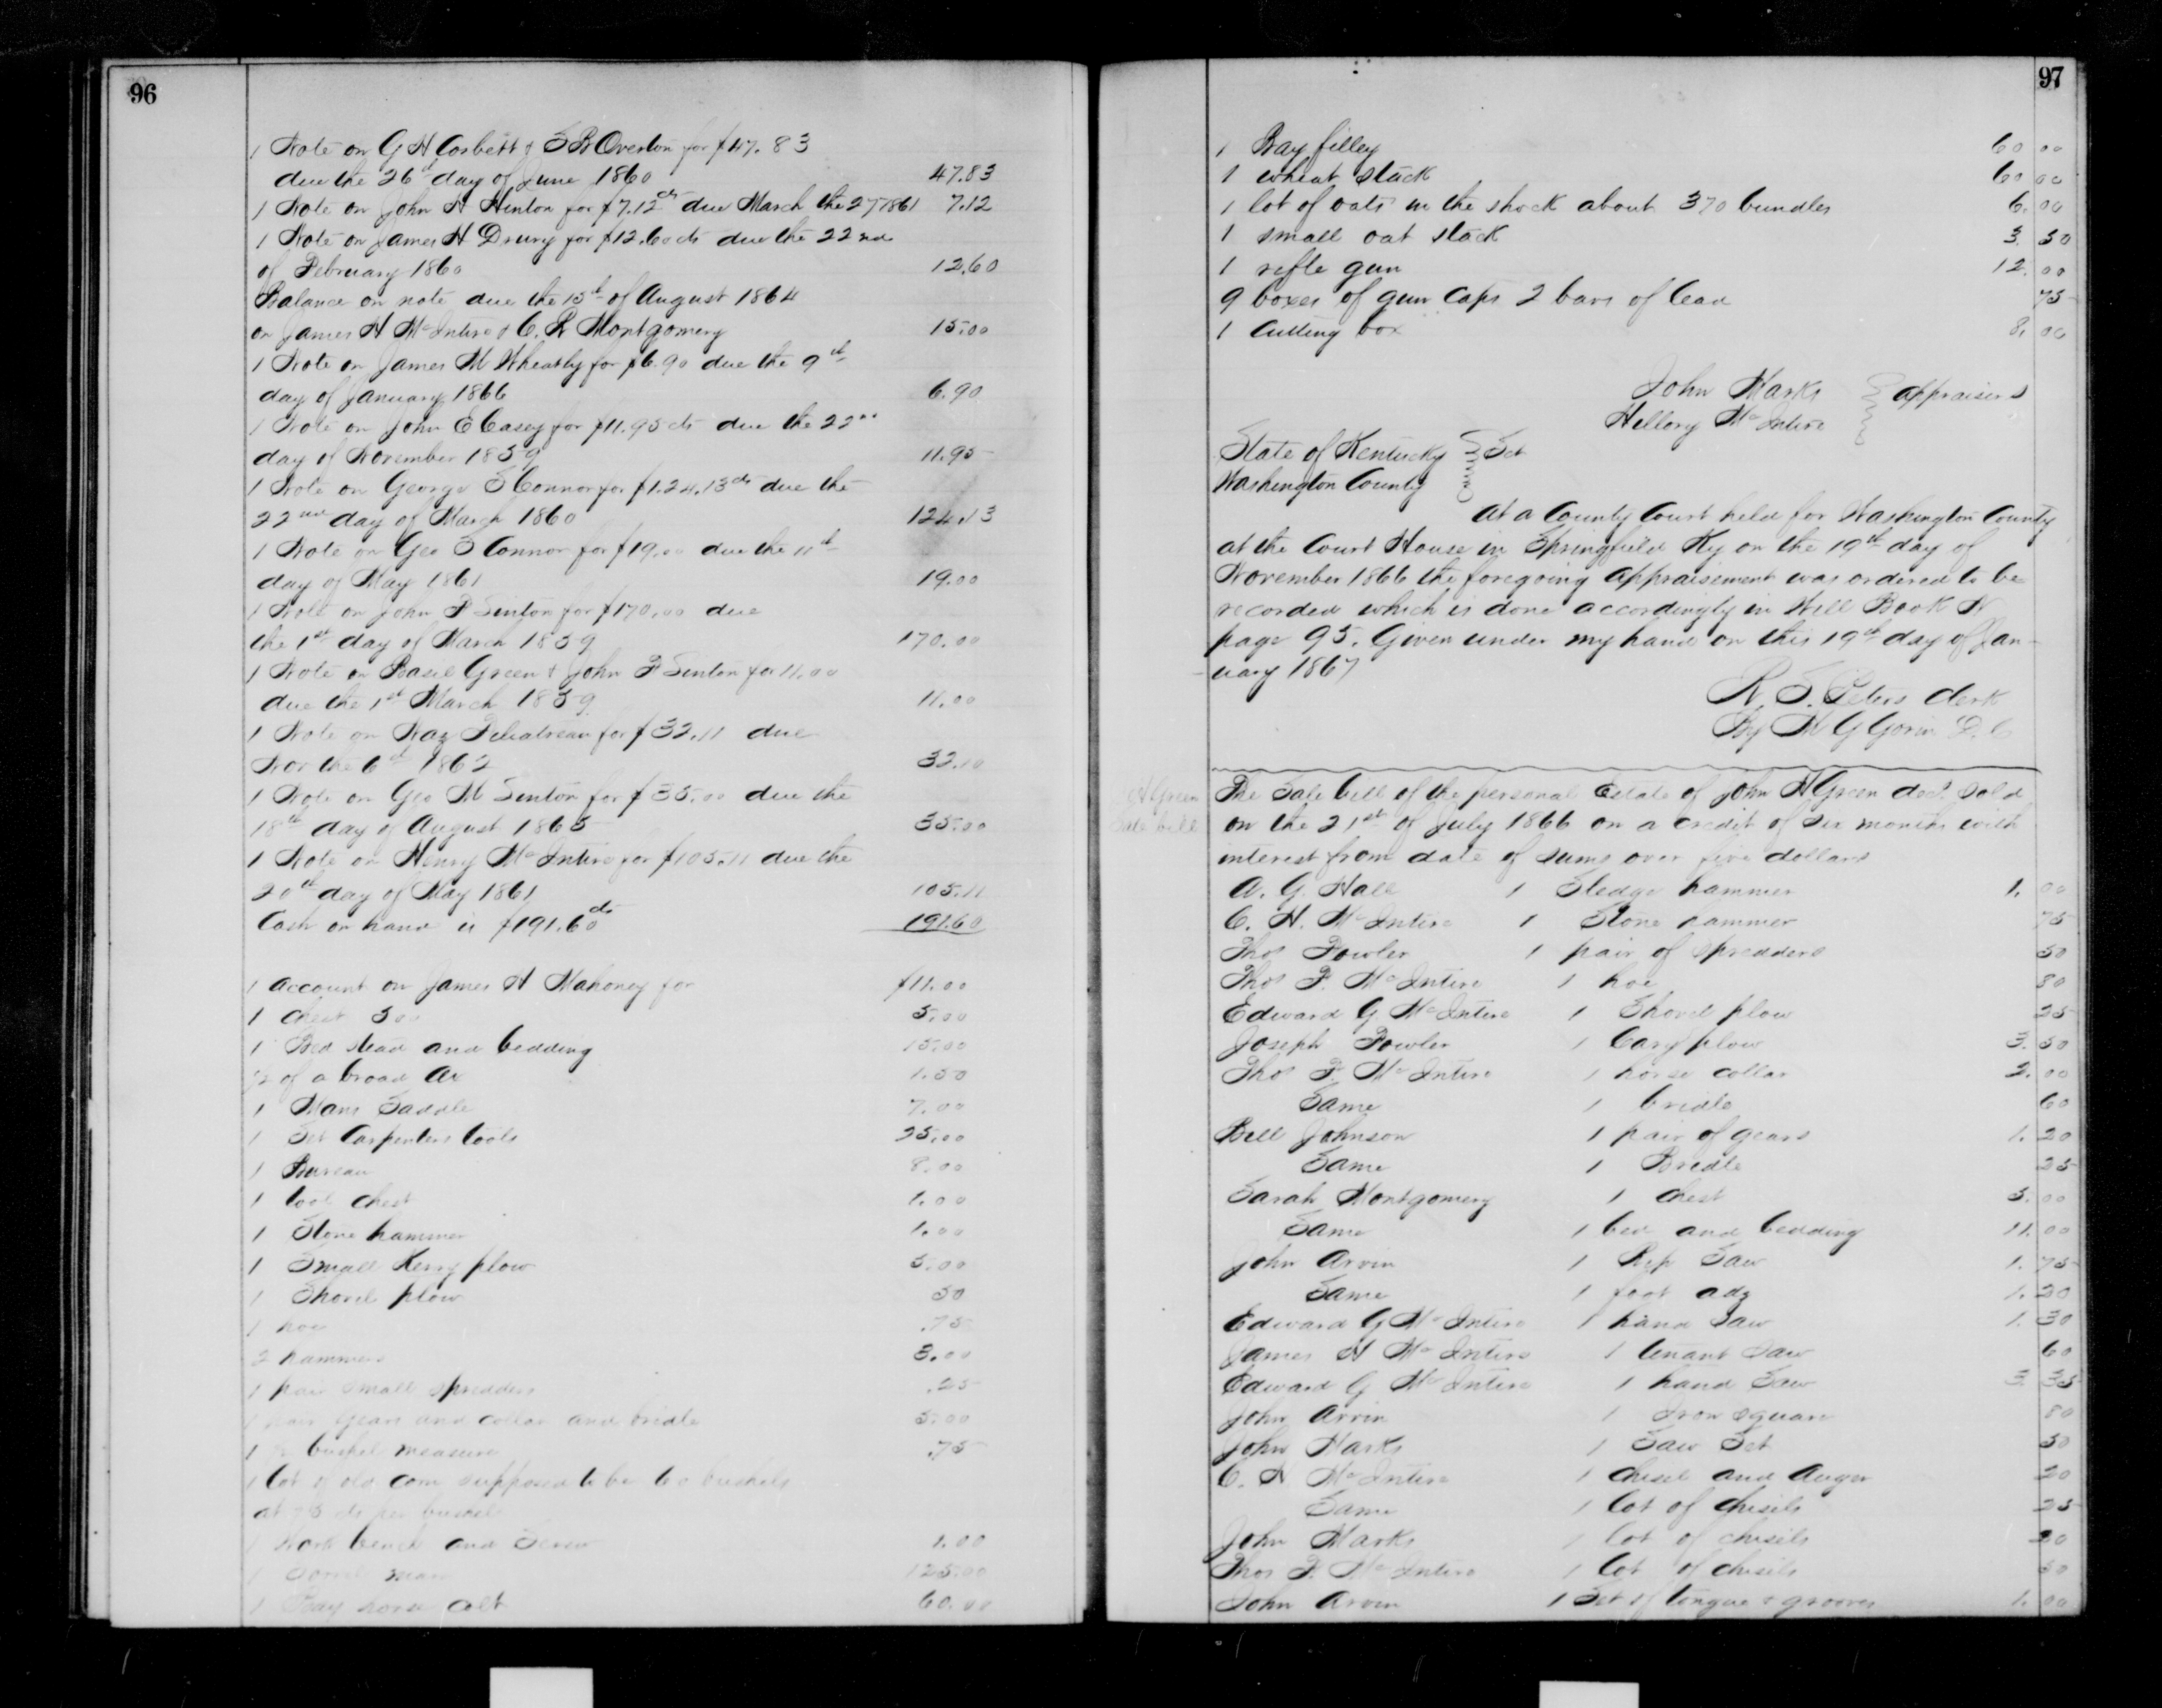 96
1 Note on G H Corbett & S B Overton for $47.83
due the 26th day of June 1860 47.83
1 Note on John H Hinton for $7.12cts due March the 27 1861 7.12
1 Note on James H Drury for $12.60 cts due the 22nd
of February 1860 12.60
Balance on note due the 15th of August 1864
on James H McIntire & C. R Montgomery 15.00
1 Note on James M Wheatly for $6.90 due the 9th
day of January 1866 6.90
1 Note on John E Casey for $11.95 cts due the 22nd
day of November 1859 11.95
1 Note on George S Connor for $1.24.13cts due the
22nd day of March 1860 124.13
1 Note on Geo S Connor for $19.00 due the 11th
day of May 1861 19.00
1 Note on John F Sinton for $170.00 due
the 1st day of March 1859 170.00
1 Note on Basil Green & John F Sinton for 11.00
due the 1st March 1859 11.00
1 Note on for $32.11 due
Nov the 6th 1862 32.10
1 Note on Geo M Sinton for $35.00 due the
18th day of August 1865 35.00
1 Note on Henry McIntire for $105.11 due the
20th day of May 1861 105.11
Cash on hand is $191.60cts 191.60
1 account on James H Mahoney for $11.00
1 Chest 500 5.00
1 Bed stead and bedding 15.00
1/2 of a broad Ax 1.50
1 Mans Saddle 7.00
1 Set Carpenters tools 25.00
1 Bureau 8.00
1 tool chest 1.00
1 Stone hammer 1.00
1 Small Kerry plow 5.00
1 Shovel plow 50
1 hoe .75
2 hammers 3.00
1 pair small spredders .25
1 pair gears and collar and bridle 5.00
1 1/2 bushel measure .75
1 lot of old corn supposed to be 60 bushels
at cts per bushel
1 Work bench and Screw 1.00
1 Sorrel mare 125.00
1 Bay horse colt 60.00
97
1 Bay filley 60 00
1 wheat stack 60 00
1 lot of oats in the shock about 370 bundles 6. 00
1 small oat stack 3. 50
1 rifle gun 12. 00
9 boxes of gun caps 2 bars of lead 75
1 Cutting box 8. 00
John Marks
Hellory McIntire appraisers
State of Kentucky Sct
Washington County
At a County Court held for Washington County
at the Court House in Springfield Ky on the 19th day of
November 1866 the foregoing appraisement was ordered to be
recorded which is done accordingly in Will Book N
page 95. Given under my hand on this 19th day of Jan-
uary 1867
R. S. Peters Clerk
By M G Gorin D. C
H Green
Sale bill
The Sale bill of the personal Estate of John H Green decd. Sold
on the 21st of July 1866 on a credit of six months with
interest from date of sums over five dollars
A. G. Hall 1 Sledge hammer 1. 00
C. H. McIntire 1 Stone hammer 75
Thos Fowler 1 pair of spredders 50
Thos F. McIntire 1 hoe 80
Edward G. McIntire 1 Shovel plow 25
Joseph Fowler 1 Cary plow 3. 50
Thos F. McIntire 1 horse collar 2. 00
Same 1 bridle 60
Bell Johnson 1 pair of gears 1. 20
Same 1 Bridle 25
Sarah Montgomery 1 chest 5. 00
Same 1 bed and bedding 11. 00
John Arvin 1 Rip Saw 1. 75
Same 1 foot adz 1. 20
Edward G McIntire 1 hand saw 1. 30
James H McIntire 1 tenant saw 60
Edward G McIntire 1 hand Saw 3. 35
John Arvin 1 Iron square 80
John Marks 1 Saw Set 50
C. H McIntire 1 chisel and Auger 20
Same 1 lot of chisels 25
John Marks 1 lot of chisels 20
Thos F. McIntire 1 lot of chisels 50
John Arvin 1 Set of tongue & grooves 1. 00